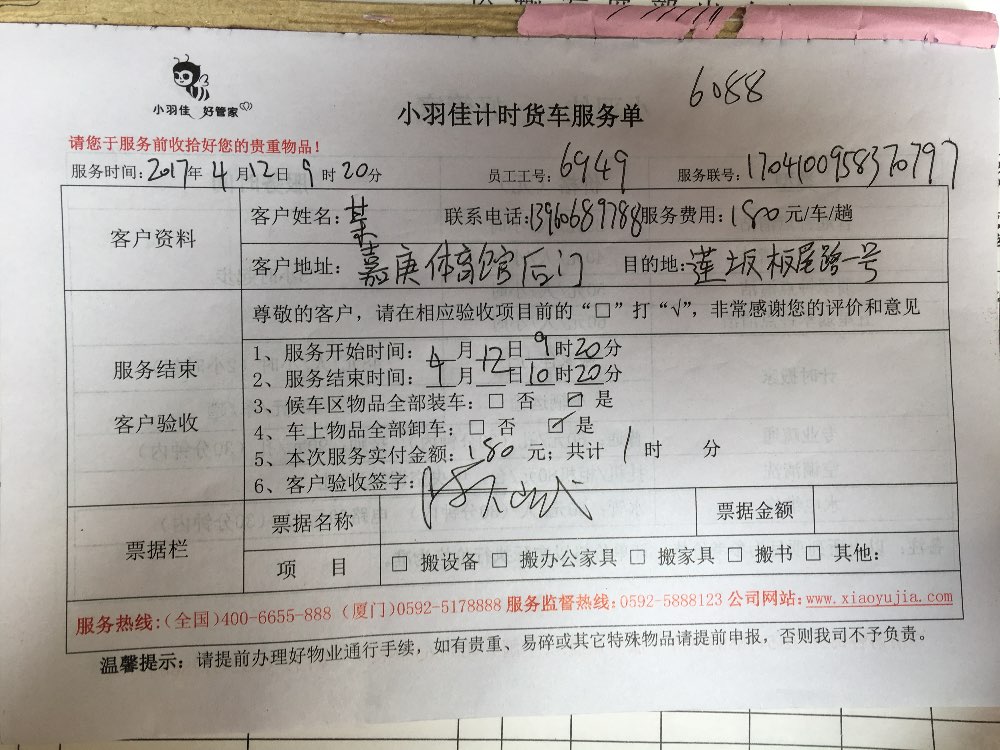 6088
小羽佳 好管家
小羽佳计时货车服务单
请您于服务前收拾好您的贵重物品！
服务时间：2017年4月12日9时20分 员工工号：6949 服务联号：1704100958370797
客户资料
客户姓名： 联系电话：13960689788 服务费用：180元/车/趟
客户地址：嘉庚体育馆后门 目的地：莲坂板尾路一号
尊敬的客户，请在相应验收项目前的“□”打“√”，非常感谢您的评价和意见
服务结束
客户验收
1、服务开始时间：4月12日9时20分
2、服务结束时间：4月12日10时20分
3、候车区物品全部装车：□ 否 ☑ 是
4、车上物品全部卸车：□ 否 ☑ 是
5、本次服务实付金额：180元；共计1时 分
6、客户验收签字：
票据栏
票据名称 票据金额
项 目 □ 搬设备 □ 搬办公家具 □ 搬家具 □ 搬书 □ 其他：
服务热线：(全国)400-6655-888 (厦门)0592-5178888 服务监督热线：0592-5888123 公司网站：www.xiaoyujia.com
温馨提示：请提前办理好物业通行手续，如有贵重、易碎或其它特殊物品请提前申报，否则我司不予负责。